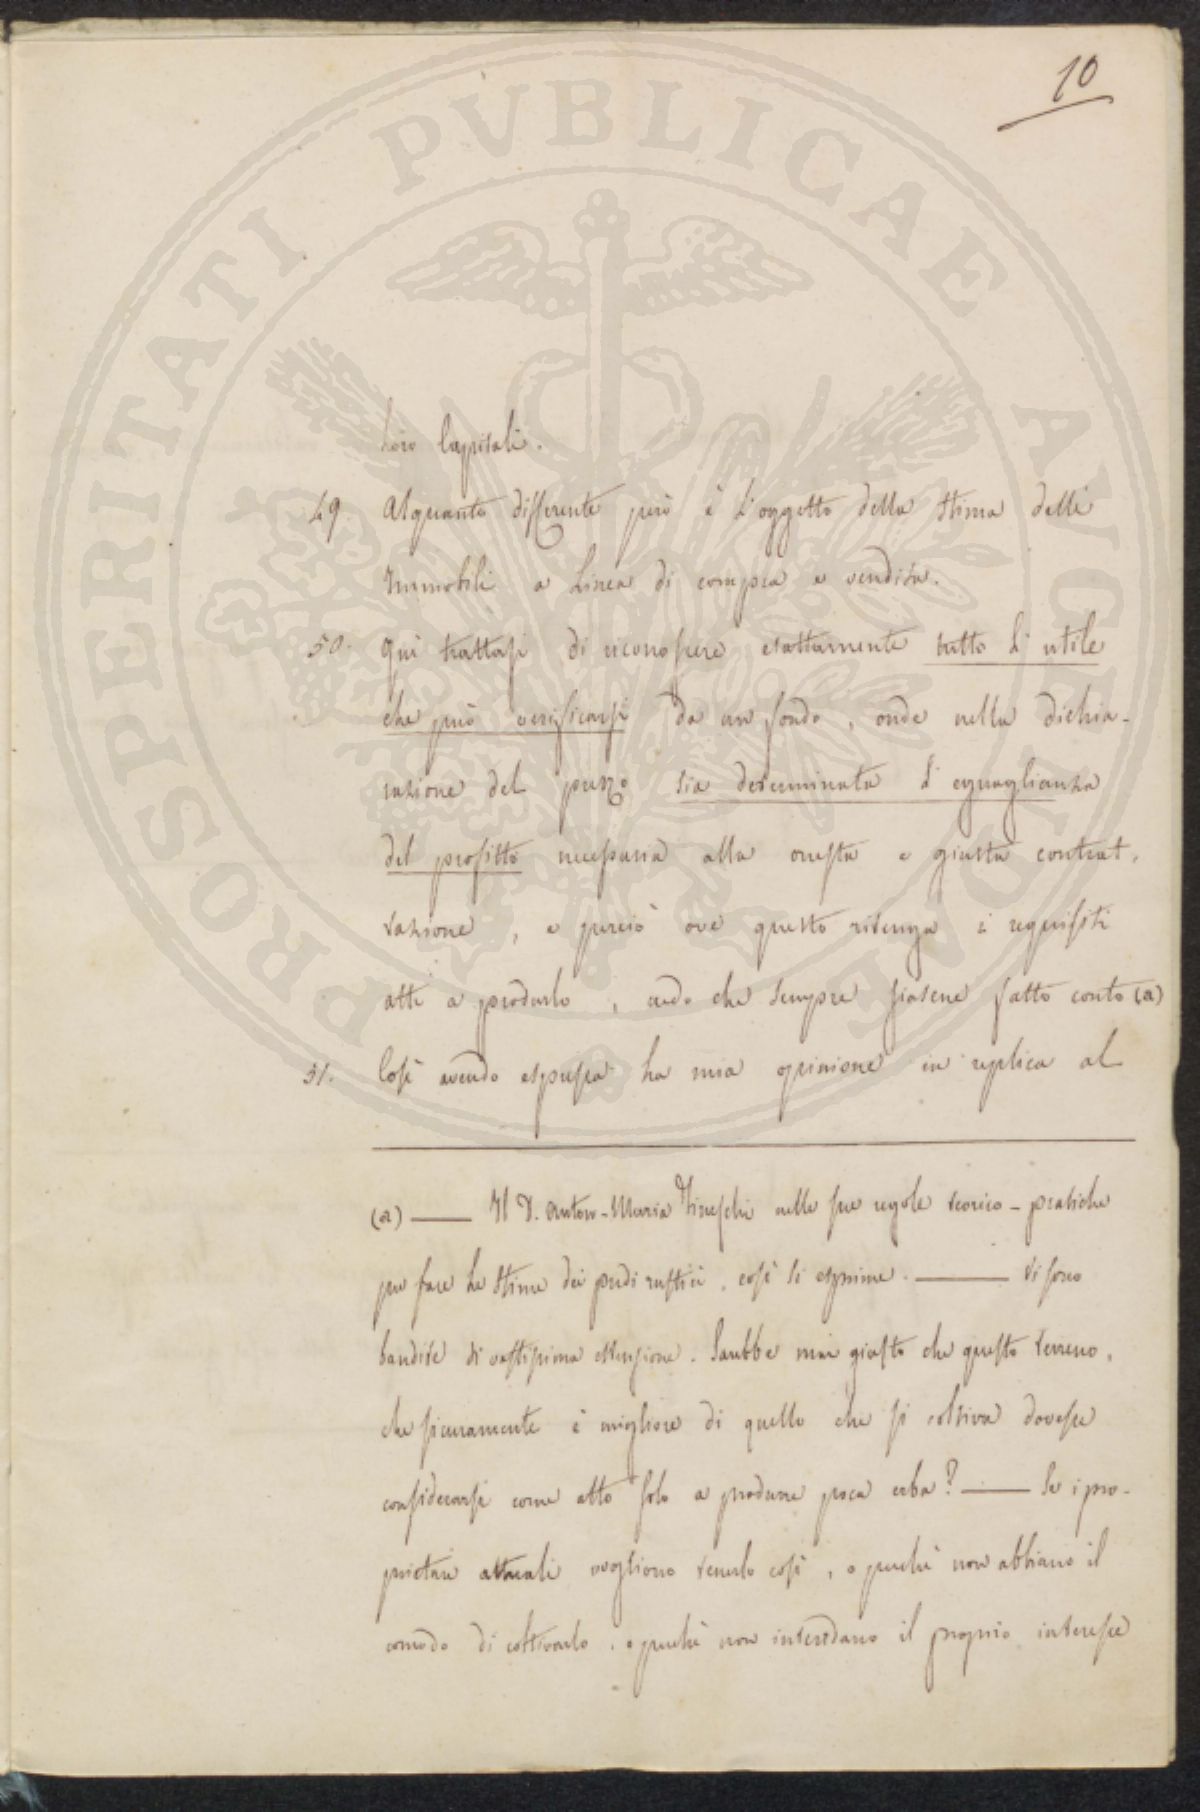 10
loro Capitali.
49. Alquanto differente però è l'oggetto della stima delli
Immobili a Linea di compra e vendita.
50. Quì trattasi di riconoscere esattamente tutto l'utile
che può verificarsi da un fondo, onde nella dichia-
razione del prezzo sia determinata l'eguaglianza
del profitto necessaria alla onesta e giusta contrat-
tazione, e perciò ove questo ritenga i requisiti
atti a produrlo, credo che sempre siasene fatto conto (a)
51. Così avendo espressa la mia opinione in replica al
(a) —— Il D. Anton-Maria nelle sue regole teorico-pratiche
per fare le stime dei predi rustici, così si esprime. —— Vi sono
bandite di vastissima estensione. Sarebbe mai giusto che questo terreno,
che sicuramente è migliore di quello che si coltiva dovesse
considerarsi come atto solo a produrre poca erba? —— Se i pro-
prietari attuali vogliono tenerlo così, o perchè non abbiano il
comodo di coltivarlo, o perchè non intendano il proprio interesse
PROSPERITATI PVBLICAE AVGENDAE